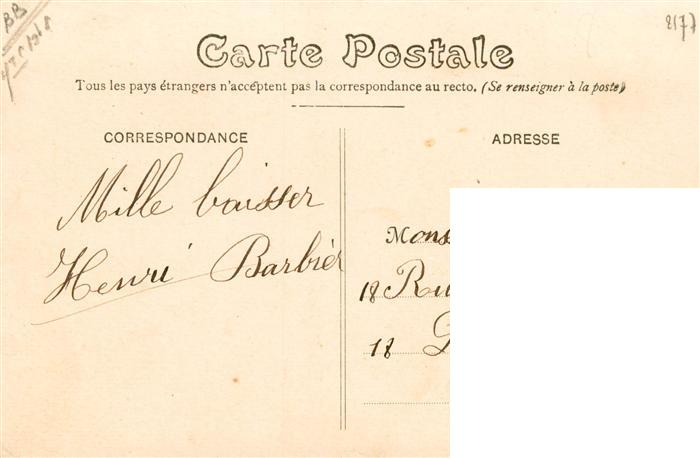 BB
2177
Carte Postale
Tous les pays étrangers n'acceptent pas la correspondance au recto. (Se renseigner à la poste)
CORRESPONDANCE
Mille baisser
Henri Barbier
ADRESSE
Mons
18 Ru
18